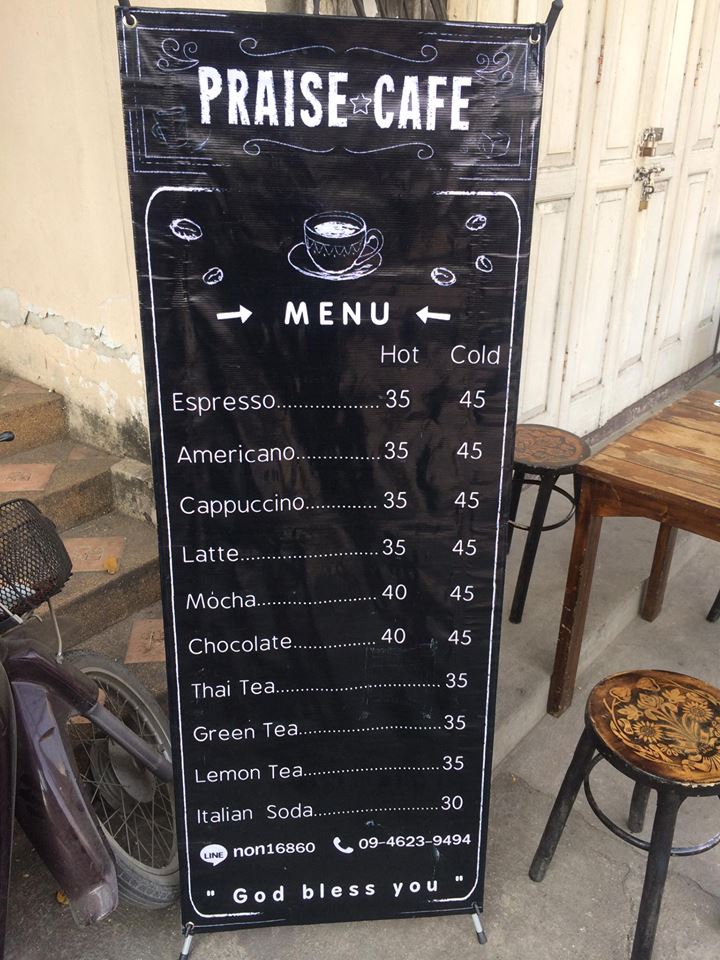 PRAISE CAFE
MENU
Hot Cold
Espresso................... 35 45
Americano................ 35 45
Cappuccino.............. 35 45
Latte.......................... 35 45
Mocha....................... 40 45
Chocolate................ 40 45
Thai Tea............................... 35
Green Tea........................... 35
Lemon Tea.......................... 35
Italian Soda........................ 30
LINE non16860 09-4623-9494
" God bless you "